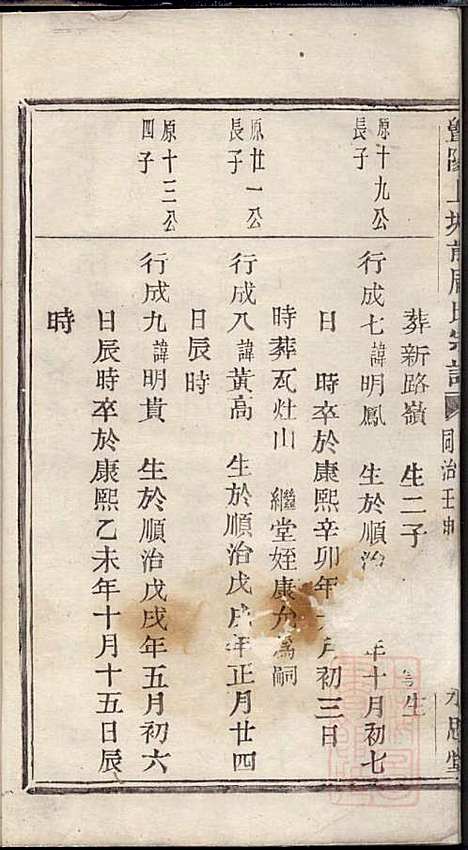 周氏宗譜 同治壬申
葬新路嶺 生二子 生
原十九公長子
行成七諱明鳳 生於順治 年十月初七
日 時卒於康熙辛卯年 月初三日
時葬瓦灶山 繼堂姪康允為嗣
原廿一公長子
行成八諱黃高 生於順治戊戌年正月廿四
日辰時
原十三公四子
行成九諱明貴 生於順治戊戌年五月初六
日辰時卒於康熙乙未年十月十五日辰
時